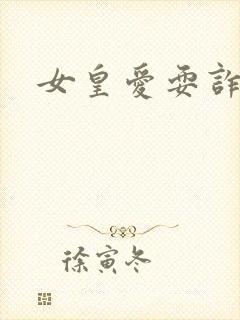 女皇愛耍詐
徐寅冬